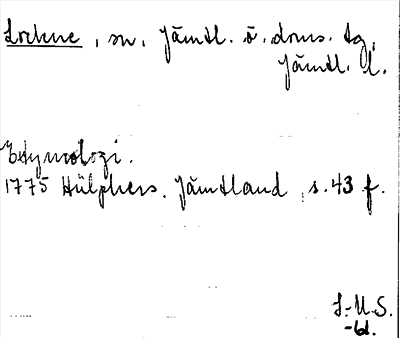 Lockne, sn, Jämtl. ö. doms. tg,
Jämtl. l.
Etymologi.
1775 Hülphers. Jämtland, s. 43 f.
L-U.S.
-bl.